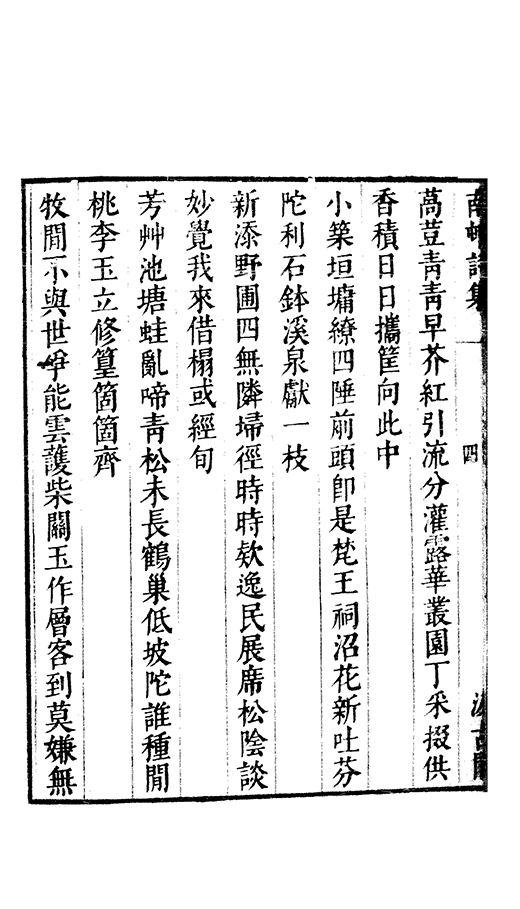 南村詩集 一 四 汲古閣
萵荳靑靑早芥紅引流分灌露華叢園丁采掇供
香積日日攜筐向此中
小築垣墉繚四陲前頭卽是梵王祠沼花新吐芬
陀利石鉢溪泉獻一枝
新添野圃四無隣埽徑時時欵逸民展席松陰談
妙覺我來借榻或經旬
芳艸池塘蛙亂啼靑松未長鶴巢低坡陀誰種閒
桃李玉立修篁箇箇齊
牧閒不與世爭能雲護柴關玉作層客到莫嫌無